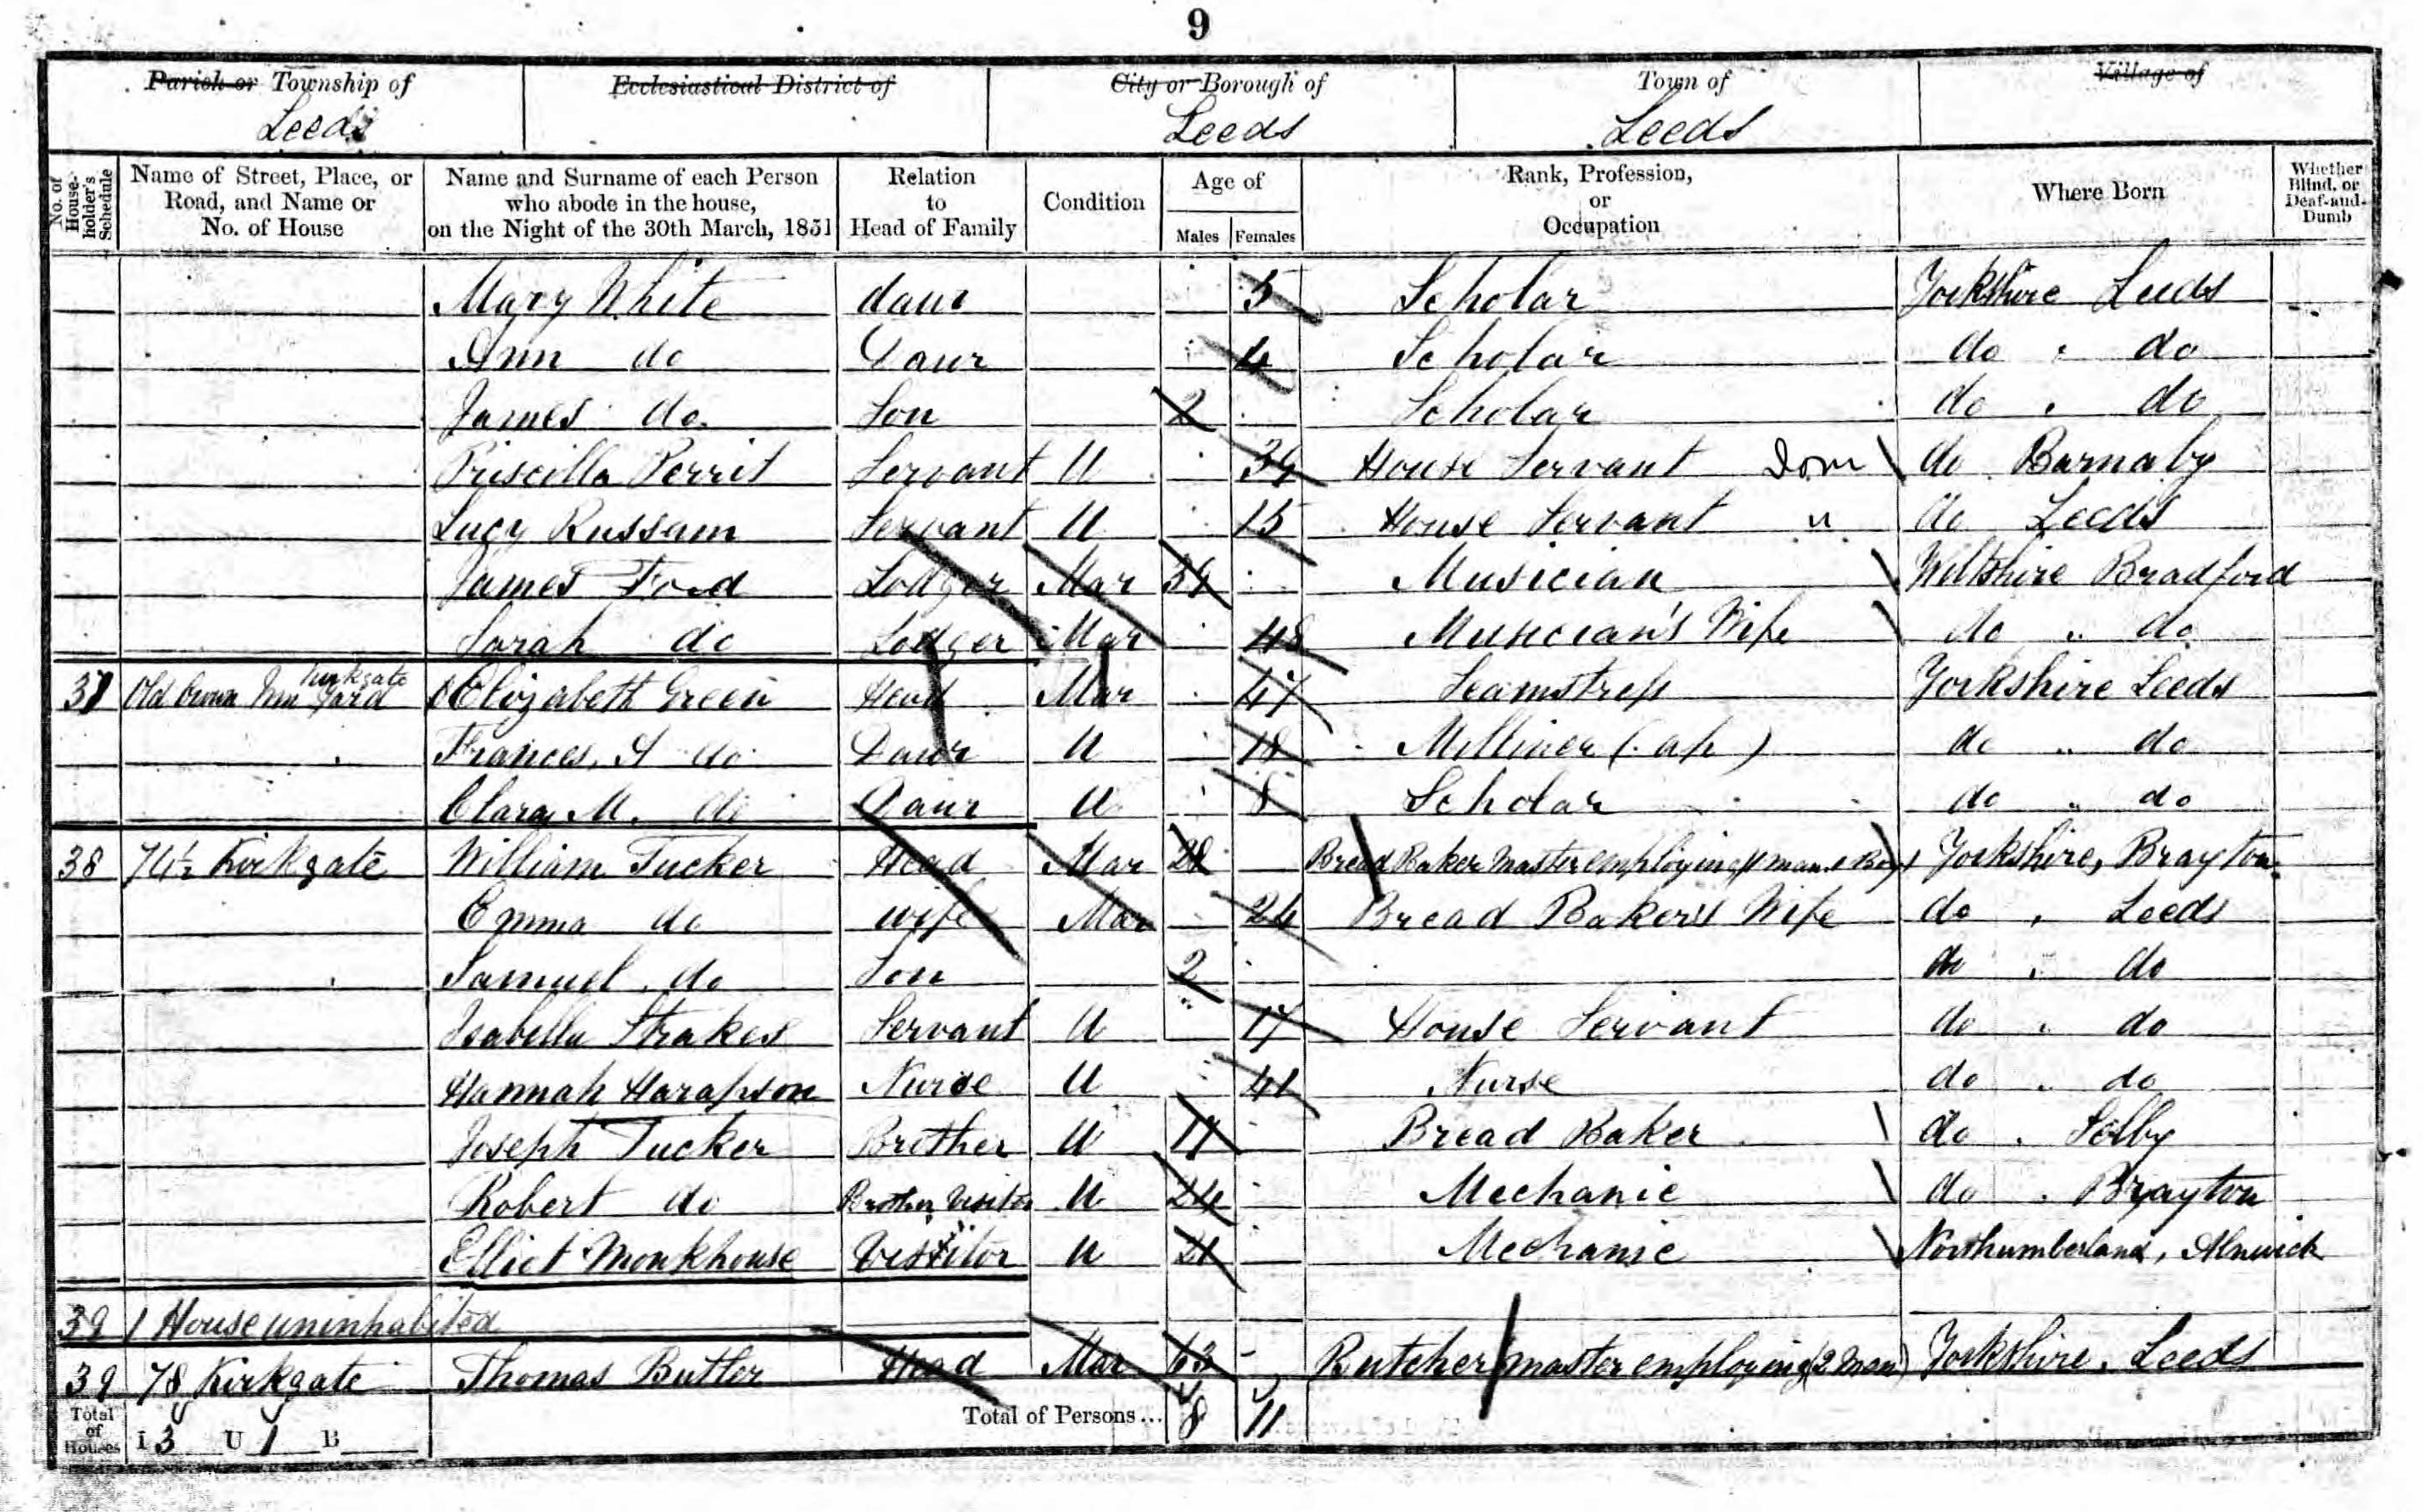 9
Parish or Township of Ecclesiastical District of City or Borough of Town of Village of
Leeds Leeds Leeds
No. of House-holder's Schedule Name of Street, Place, or Road, and Name or No. of House Name and Surname of each Person who abode in the house, on the Night of the 30th March, 1851 Relation to Head of Family Condition Age of Males Females Rank, Profession, or Occupation Where Born Whether Blind, or Deaf-and-Dumb
Mary White daur 5 Scholar Yorkshire Leeds
Ann do Daur 4 Scholar do " do
James do Son 2 Scholar do " do
Priscilla Perrit Servant U 39 House Servant Dom do Barnaby
Lucy Russam Servant U 15 House Servant " do Leeds
James Ford Lodger Mar 34 Musician Wiltshire Bradford
Sarah do Lodger Mar 48 Musician's Wife do " do
37 Old Crown Inn Yard Kirkgate Elizabeth Green Head Mar 47 Seamstress Yorkshire Leeds
Frances A do Daur U 18 Milliner (ap) do " do
Clara M. do Daur U 8 Scholar do " do
38 74½ Kirkgate William Tucker Head Mar 28 Bread Baker Master employing 1 man 1 Boy Yorkshire, Brayton
Emma do wife Mar 24 Bread Baker's Wife do " Leeds
Samuel do Son 2 do " do
Isabella Strakes Servant U 17 House Servant do " do
Hannah Harapson Nurse U 41 Nurse do " do
Joseph Tucker Brother U 17 Bread Baker do " Selby
Robert do Brother Visitor U 24 Mechanic do " Brayton
Elliot Monkhouse Visitor U 21 Mechanic Northumberland, Alnwick
39 1 House uninhabited
39 78 Kirkgate Thomas Butler Head Mar 63 Butcher master employing (2 Men) Yorkshire, Leeds
Total of Houses I 3 U 1 B Total of Persons... 8 11